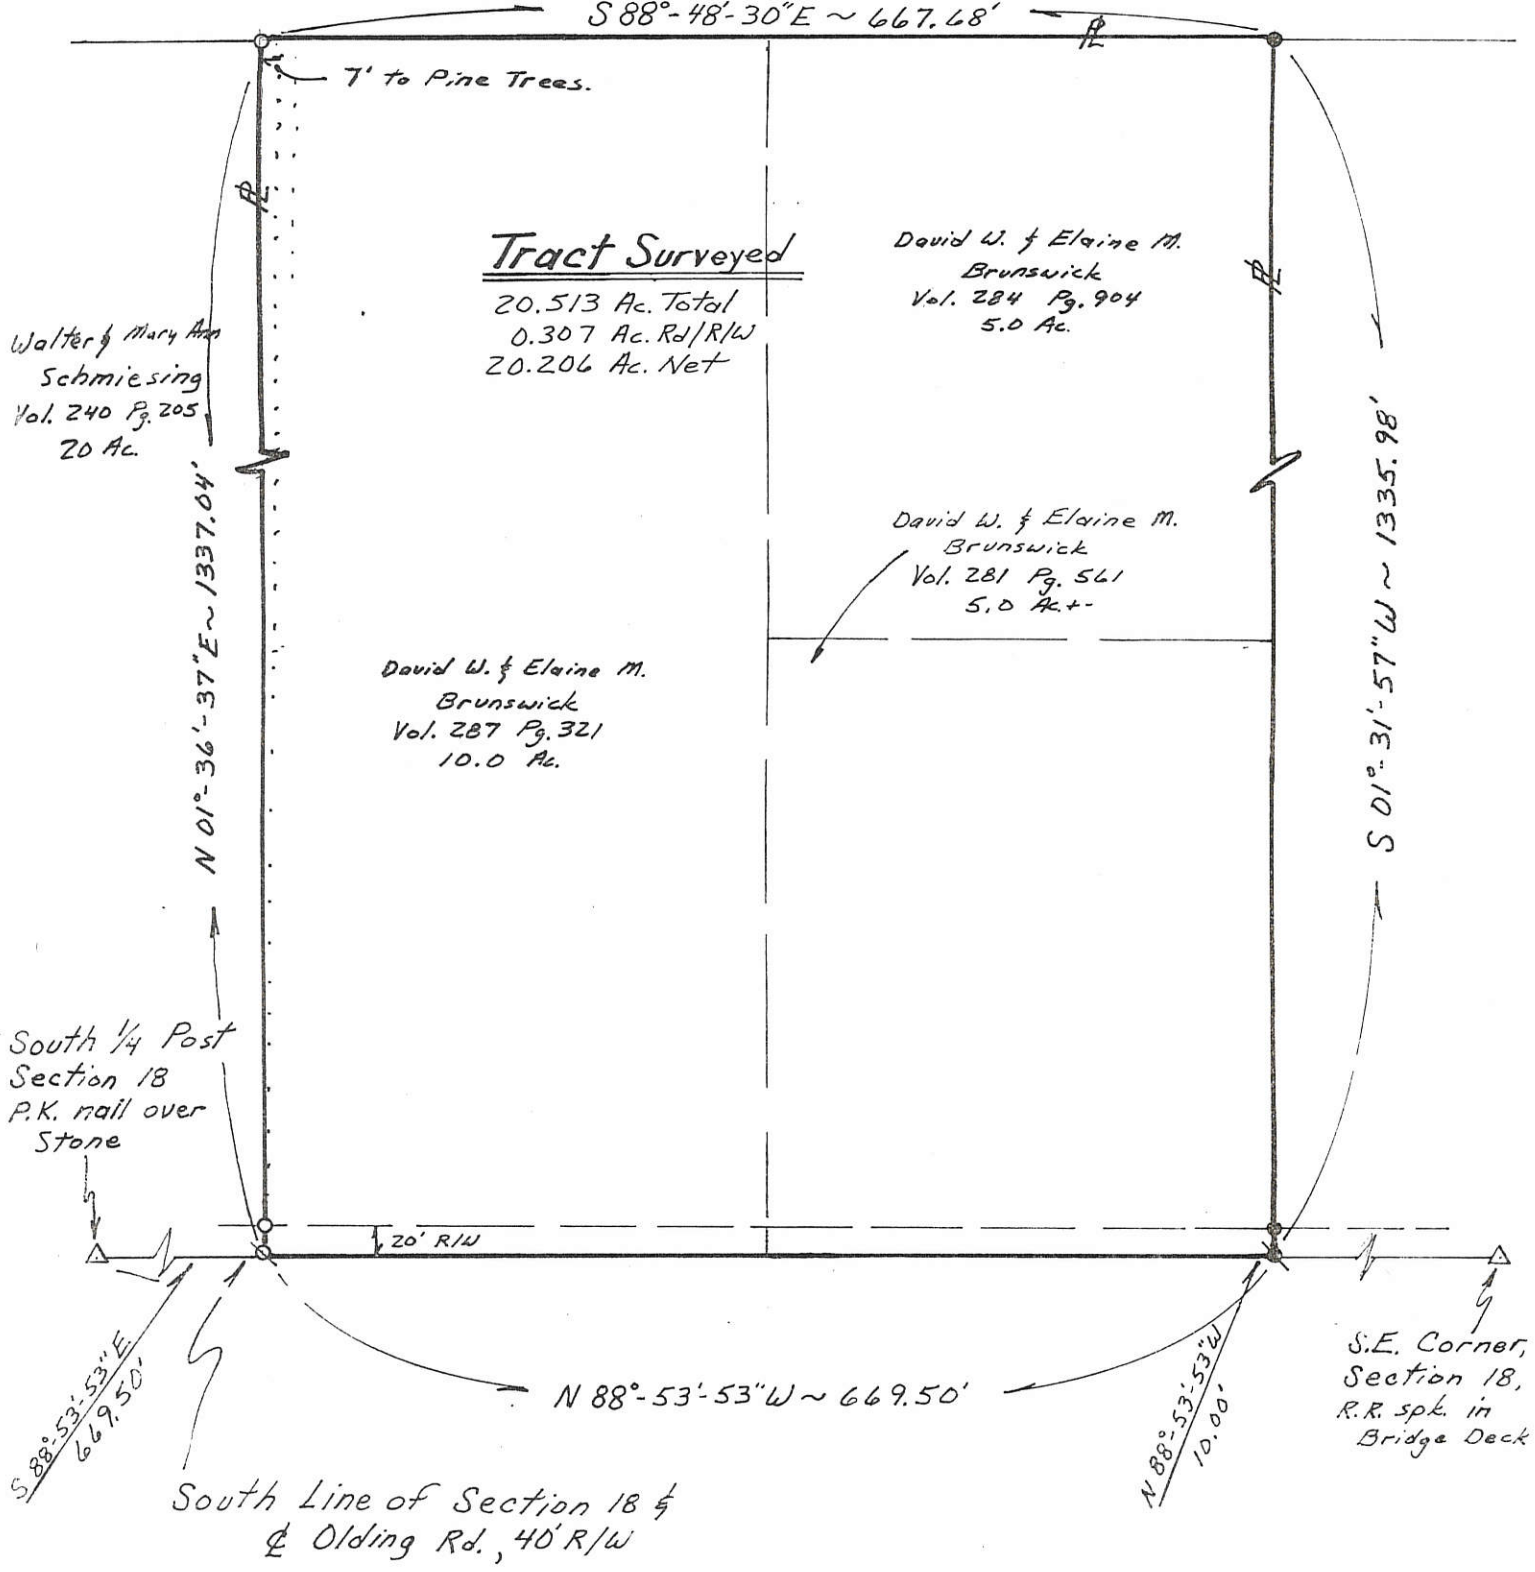 S 88°-48'-30"E ~ 667.68'
7' to Pine Trees.
Tract Surveyed
20.513 Ac. Total
0.307 Ac. Rd/R/W
20.206 Ac. Net
David W. & Elaine M.
Brunswick
Vol. 284 Pg. 904
5.0 Ac.
Walter & Mary Ann
Schmiesing
Vol. 240 Pg. 205
20 Ac.
N 01°-36'-37"E ~ 1337.04'
S 01°-31'-57"W ~ 1335.98'
David W. & Elaine M.
Brunswick
Vol. 281 Pg. 561
5.0 Ac.+-
David W. & Elaine M.
Brunswick
Vol. 287 Pg. 321
10.0 Ac.
South 1/4 Post
Section 18
P.K. nail over
Stone
20' R/W
S 88°-53'-53"E
669.50'
N 88°-53'-53"W ~ 669.50'
N 88°-53'-53"W
10.00'
S.E. Corner,
Section 18,
R.R. spk. in
Bridge Deck
South Line of Section 18 &
℄ Olding Rd., 40' R/W